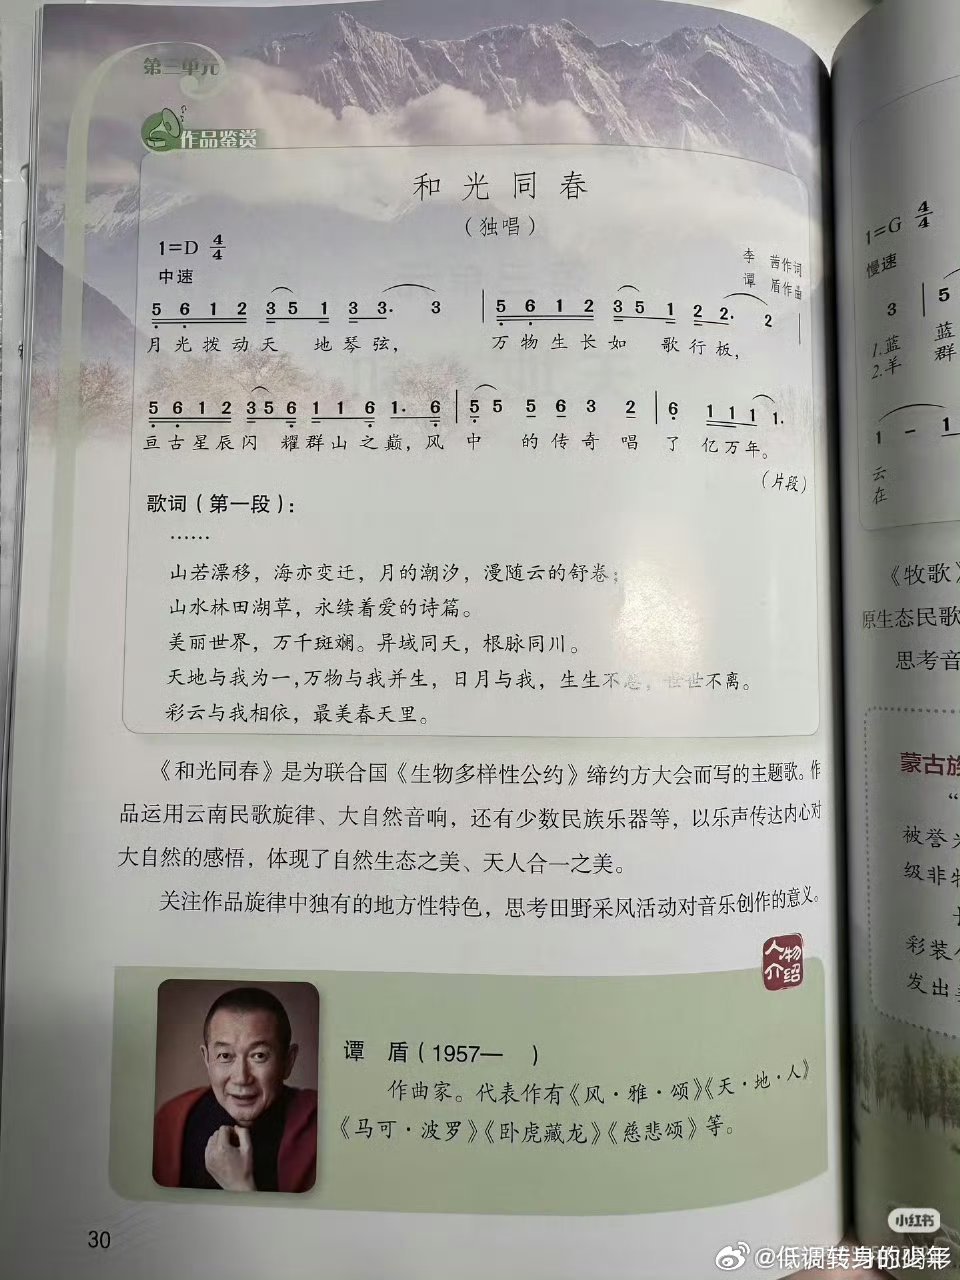 第三单元
作品鉴赏
和光同春
（独唱）
1=D 4/4
中速
李 茜作词
谭 盾作曲
5 6 1 2 3 5 1 3 3· 3 | 5 6 1 2 3 5 1 2 2· 2 |
月光拨动天 地琴弦， 万物生长如 歌行板，
5 6 1 2 3 5 6 1 1 6 1· 6 | 5 5 5 6 3 2 | 6 1 1 1 1·
亘古星辰闪 耀群山之巅，风 中 的传奇唱 了 亿万年。
（片段）
歌词（第一段）：
……
山若漂移，海亦变迁，月的潮汐，漫随云的舒卷；
山水林田湖草，永续着爱的诗篇。
美丽世界，万千斑斓。异域同天，根脉同川。
天地与我为一，万物与我并生，日月与我，生生不息，世世不离。
彩云与我相依，最美春天里。
《和光同春》是为联合国《生物多样性公约》缔约方大会而写的主题歌。作
品运用云南民歌旋律、大自然音响，还有少数民族乐器等，以乐声传达内心对
大自然的感悟，体现了自然生态之美、天人合一之美。
关注作品旋律中独有的地方性特色，思考田野采风活动对音乐创作的意义。
人物
介绍
谭 盾（1957— ）
作曲家。代表作有《风·雅·颂》《天·地·人》
《马可·波罗》《卧虎藏龙》《慈悲颂》等。
30
1=G 4/4
慢速
3 | 5
1.蓝 蓝
2.羊 群
1 – 1
云
在
《牧歌》
原生态民歌
思考音
蒙古族
“
被誉为
级非物
彩装
发出
小红书
@低调转身的喵彩